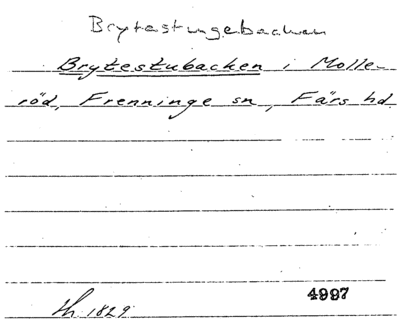 Brytestugebacken
Brytestubacken i Molle-
röd, Frenninge sn, Färs hd
4997
Th. 1829